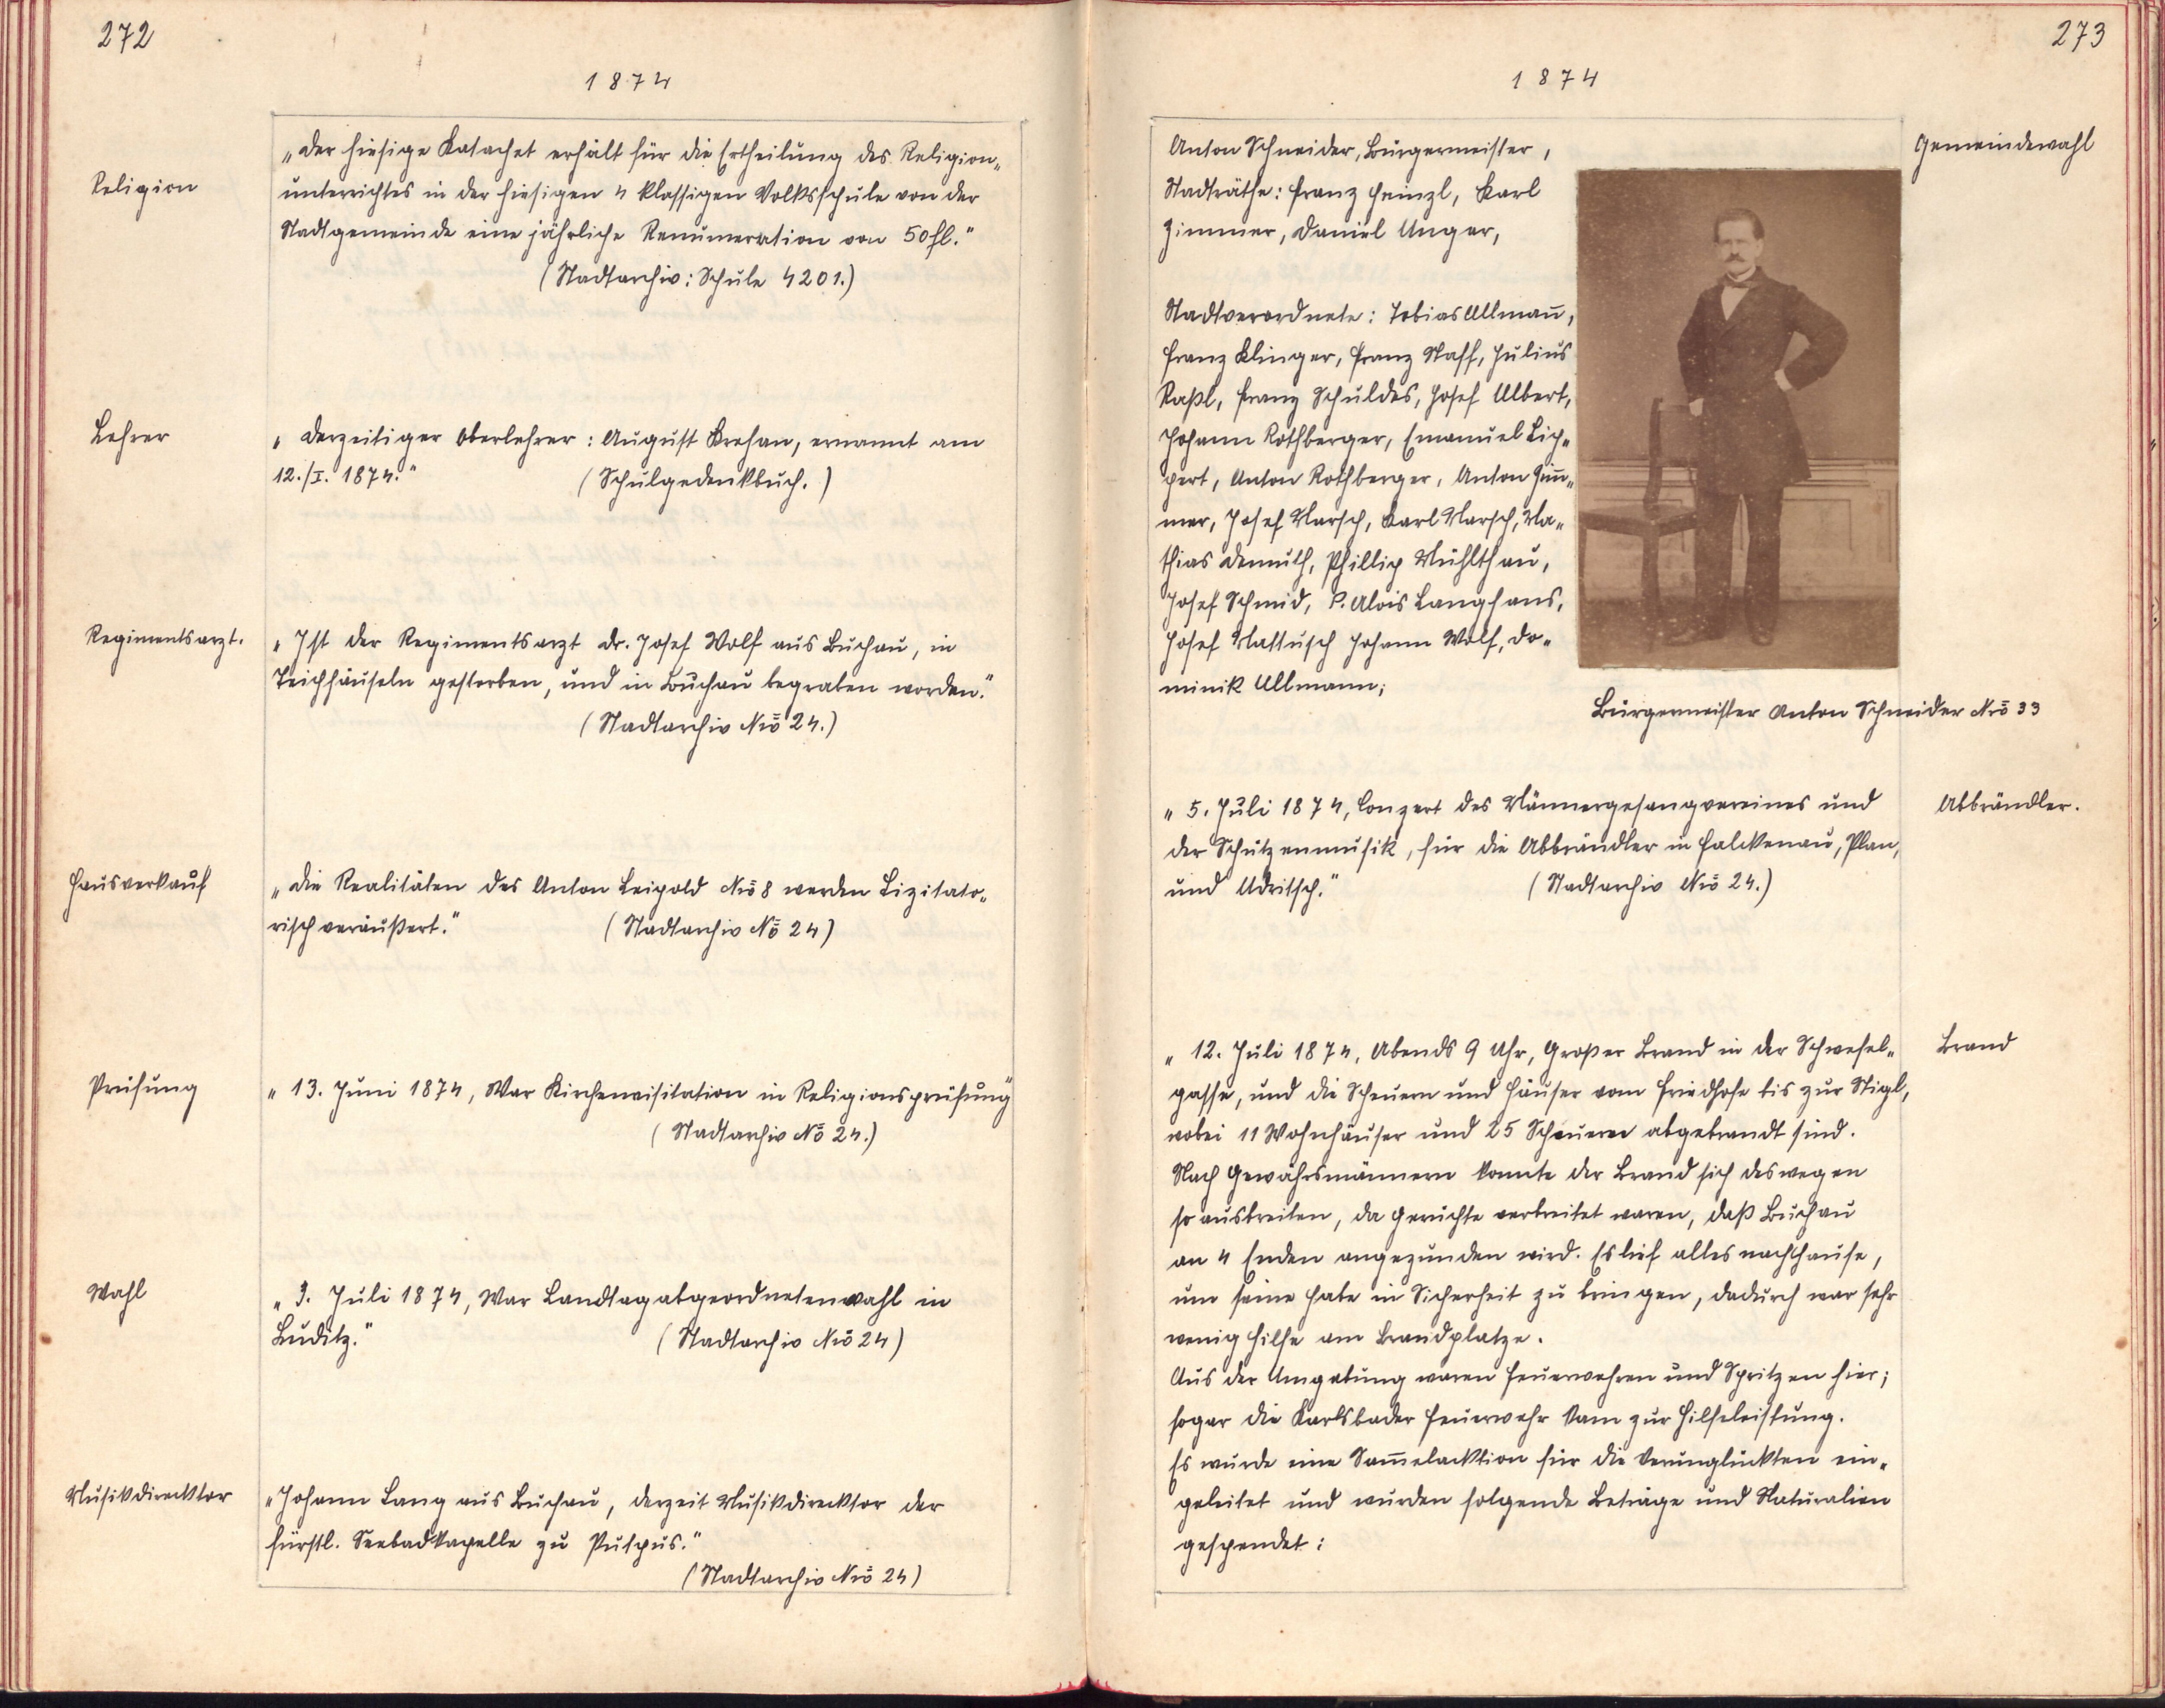 272
1874
Religion
„Der hiesige Katachet erhält für die Ertheilung des Religion„
unterrichtes in der hiesigen 4 klassigen Volksschule von der
Stadtgemeinde eine jährliche Renumeration von 50 fl."
(Stadtarchiv: Schule 4201.)
Lehrer
„Derzeitiger Oberlehrer: August Krehan, ernannt am
12./I. 1874."
(Schulgedenkbuch.)
Regimentsarzt.
„Ist der Regimentsarzt Dr. Josef Wolf aus Buchau, in
Teichhäuseln gestorben, und in Buchau begraben worden."
(Stadtarchiv Nrō 24.)
Hausverkauf
„Die Realitäten des Anton Leipold Nrō 8 werden Lizitato„
risch veräußert."
(Stadtarchiv Nō 24)
Prüfung
„13. Juni 1874, War Kirchenvisitation in Religionsprüfung"
(Stadtarchiv Nō 24.)
Wahl
„3. Juli 1874, War Landtagabgeordnetenwahl in
Luditz."
(Stadtarchiv Nrō 24)
Musikdirecktor
„Johann Lang aus Buchau, derzeit Musikdirecktor der
fürstl. Seebadkapelle zu Putpus."
(Stadtarchiv Nrō 24)
273
1874
Gemeindewahl
Anton Schneider, Bürgermeister,
Stadträthe: Franz Heinzl, Karl
Zimmer, Daniel Unger,
Stadtverordnete: Tobias Ullman̄,
Franz Klinger, Franz Staff, Julius
Raßl, Franz Schuldes, Josef Albert,
Johann Rothberger, Emanuel Lip„
pert, Anton Rothberger, Anton Zim̄„
mer, Josef Marsch, Karl Marsch, Ma„
thias Demuth, Phillip Mühlthau,
Josef Schmid, P. Alois Langhans,
Josef Mattusch Johann Wolf, Do„
minik Ullmann;
Bürgermeister Anton Schneider Nrō 33
Abbrändler.
„5. Juli 1874, Conzert des Männergesangvereines und
der Schützenmusik, für die Abbrändler in Falckenau, Plan,
und Udritsch."
(Stadtarchiv Nrō 24.)
Brand
„12. Juli 1874, Abends 9 Uhr, Großer Brand in der Schwefel„
gasse, und die Scheuern und Häuser vom Friedhofe bis zur Stigl,
wobei 11 Wohnhäuser und 25 Scheueren abgebrandt sind.
Nach Gewährsmännern konnte der Brand sich deswegen
so ausbreiten, da Gerüchte verbreitet waren, daß Buchau
an 4 Enden angezunden wird. Es lief alles nachhause,
um seine Habe in Sicherheit zu bringen, dadurch war sehr
wenig Hilfe am Brandplatze.
Aus der Umgebung waren Feuerwehren und Spritzen hier;
sogar die Karlsbader Feuerwehr kam zur Hilfeleistung.
Es wurde eine Sam̄elacktion für die Verunglückten ein„
geleitet und wurden folgende Beträge und Naturalien
gespendet: